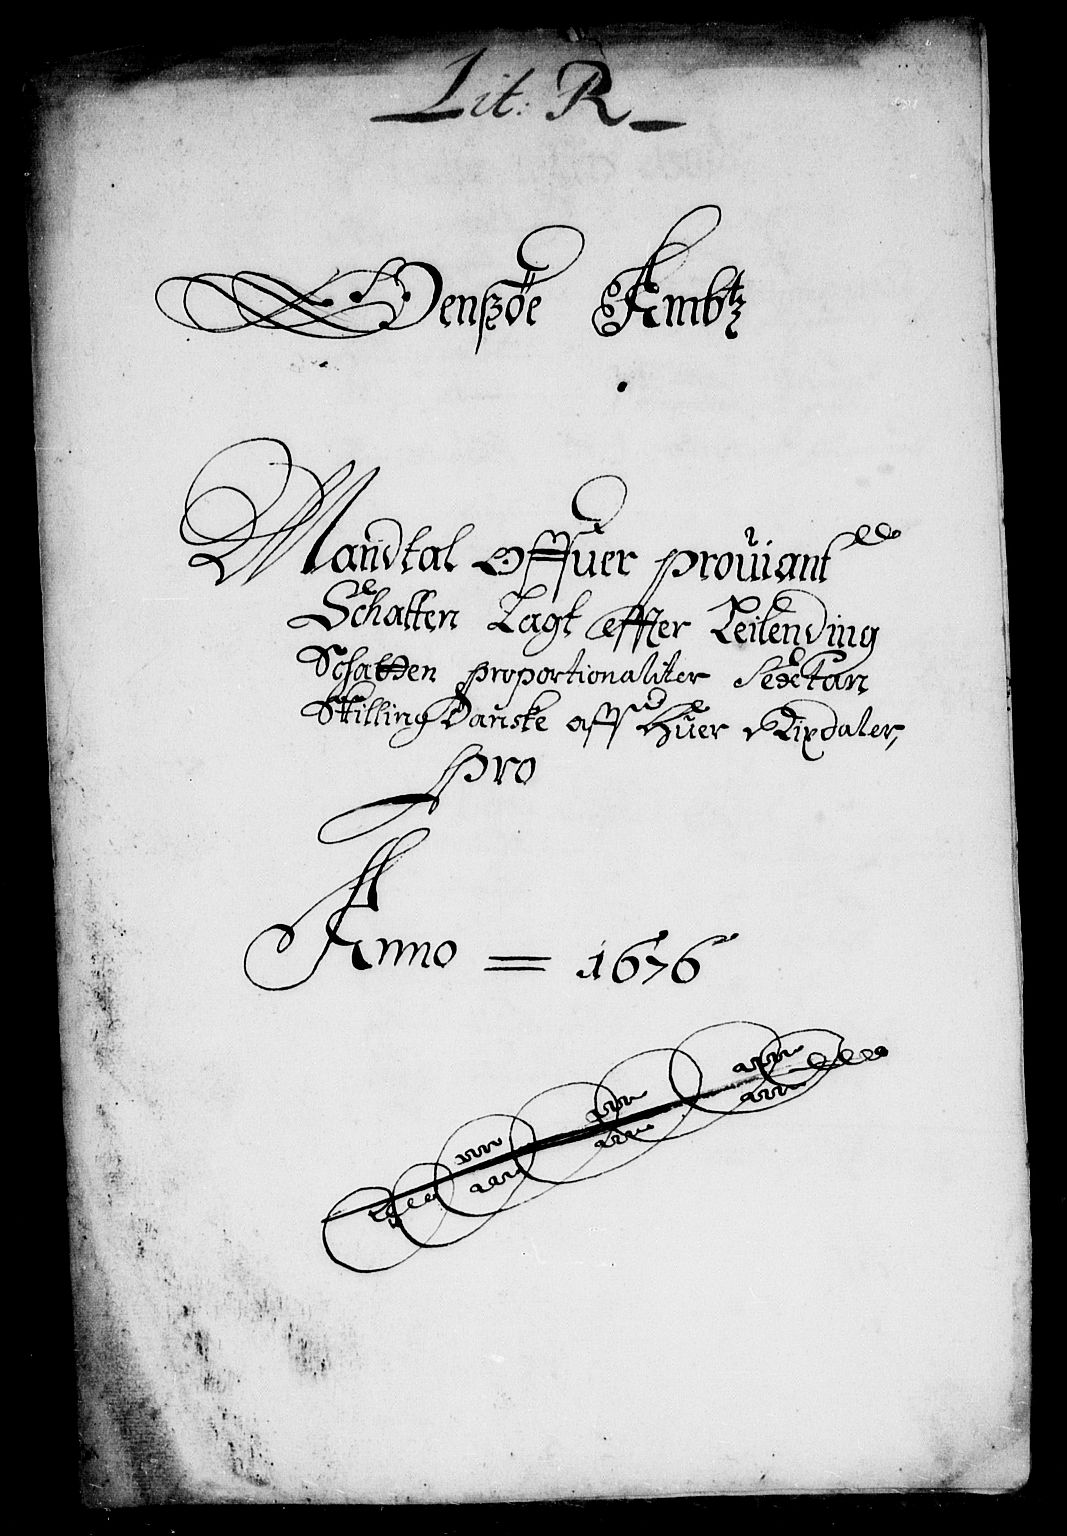 Lit: R
Odenszöe Ambtz
Mandtal offuer prouiant
Schatten Lagt effter Leilending
Schatten proportionaliter Sexten
Skilling Danske aff huer Rixdaler,
pro
Anno = 1676